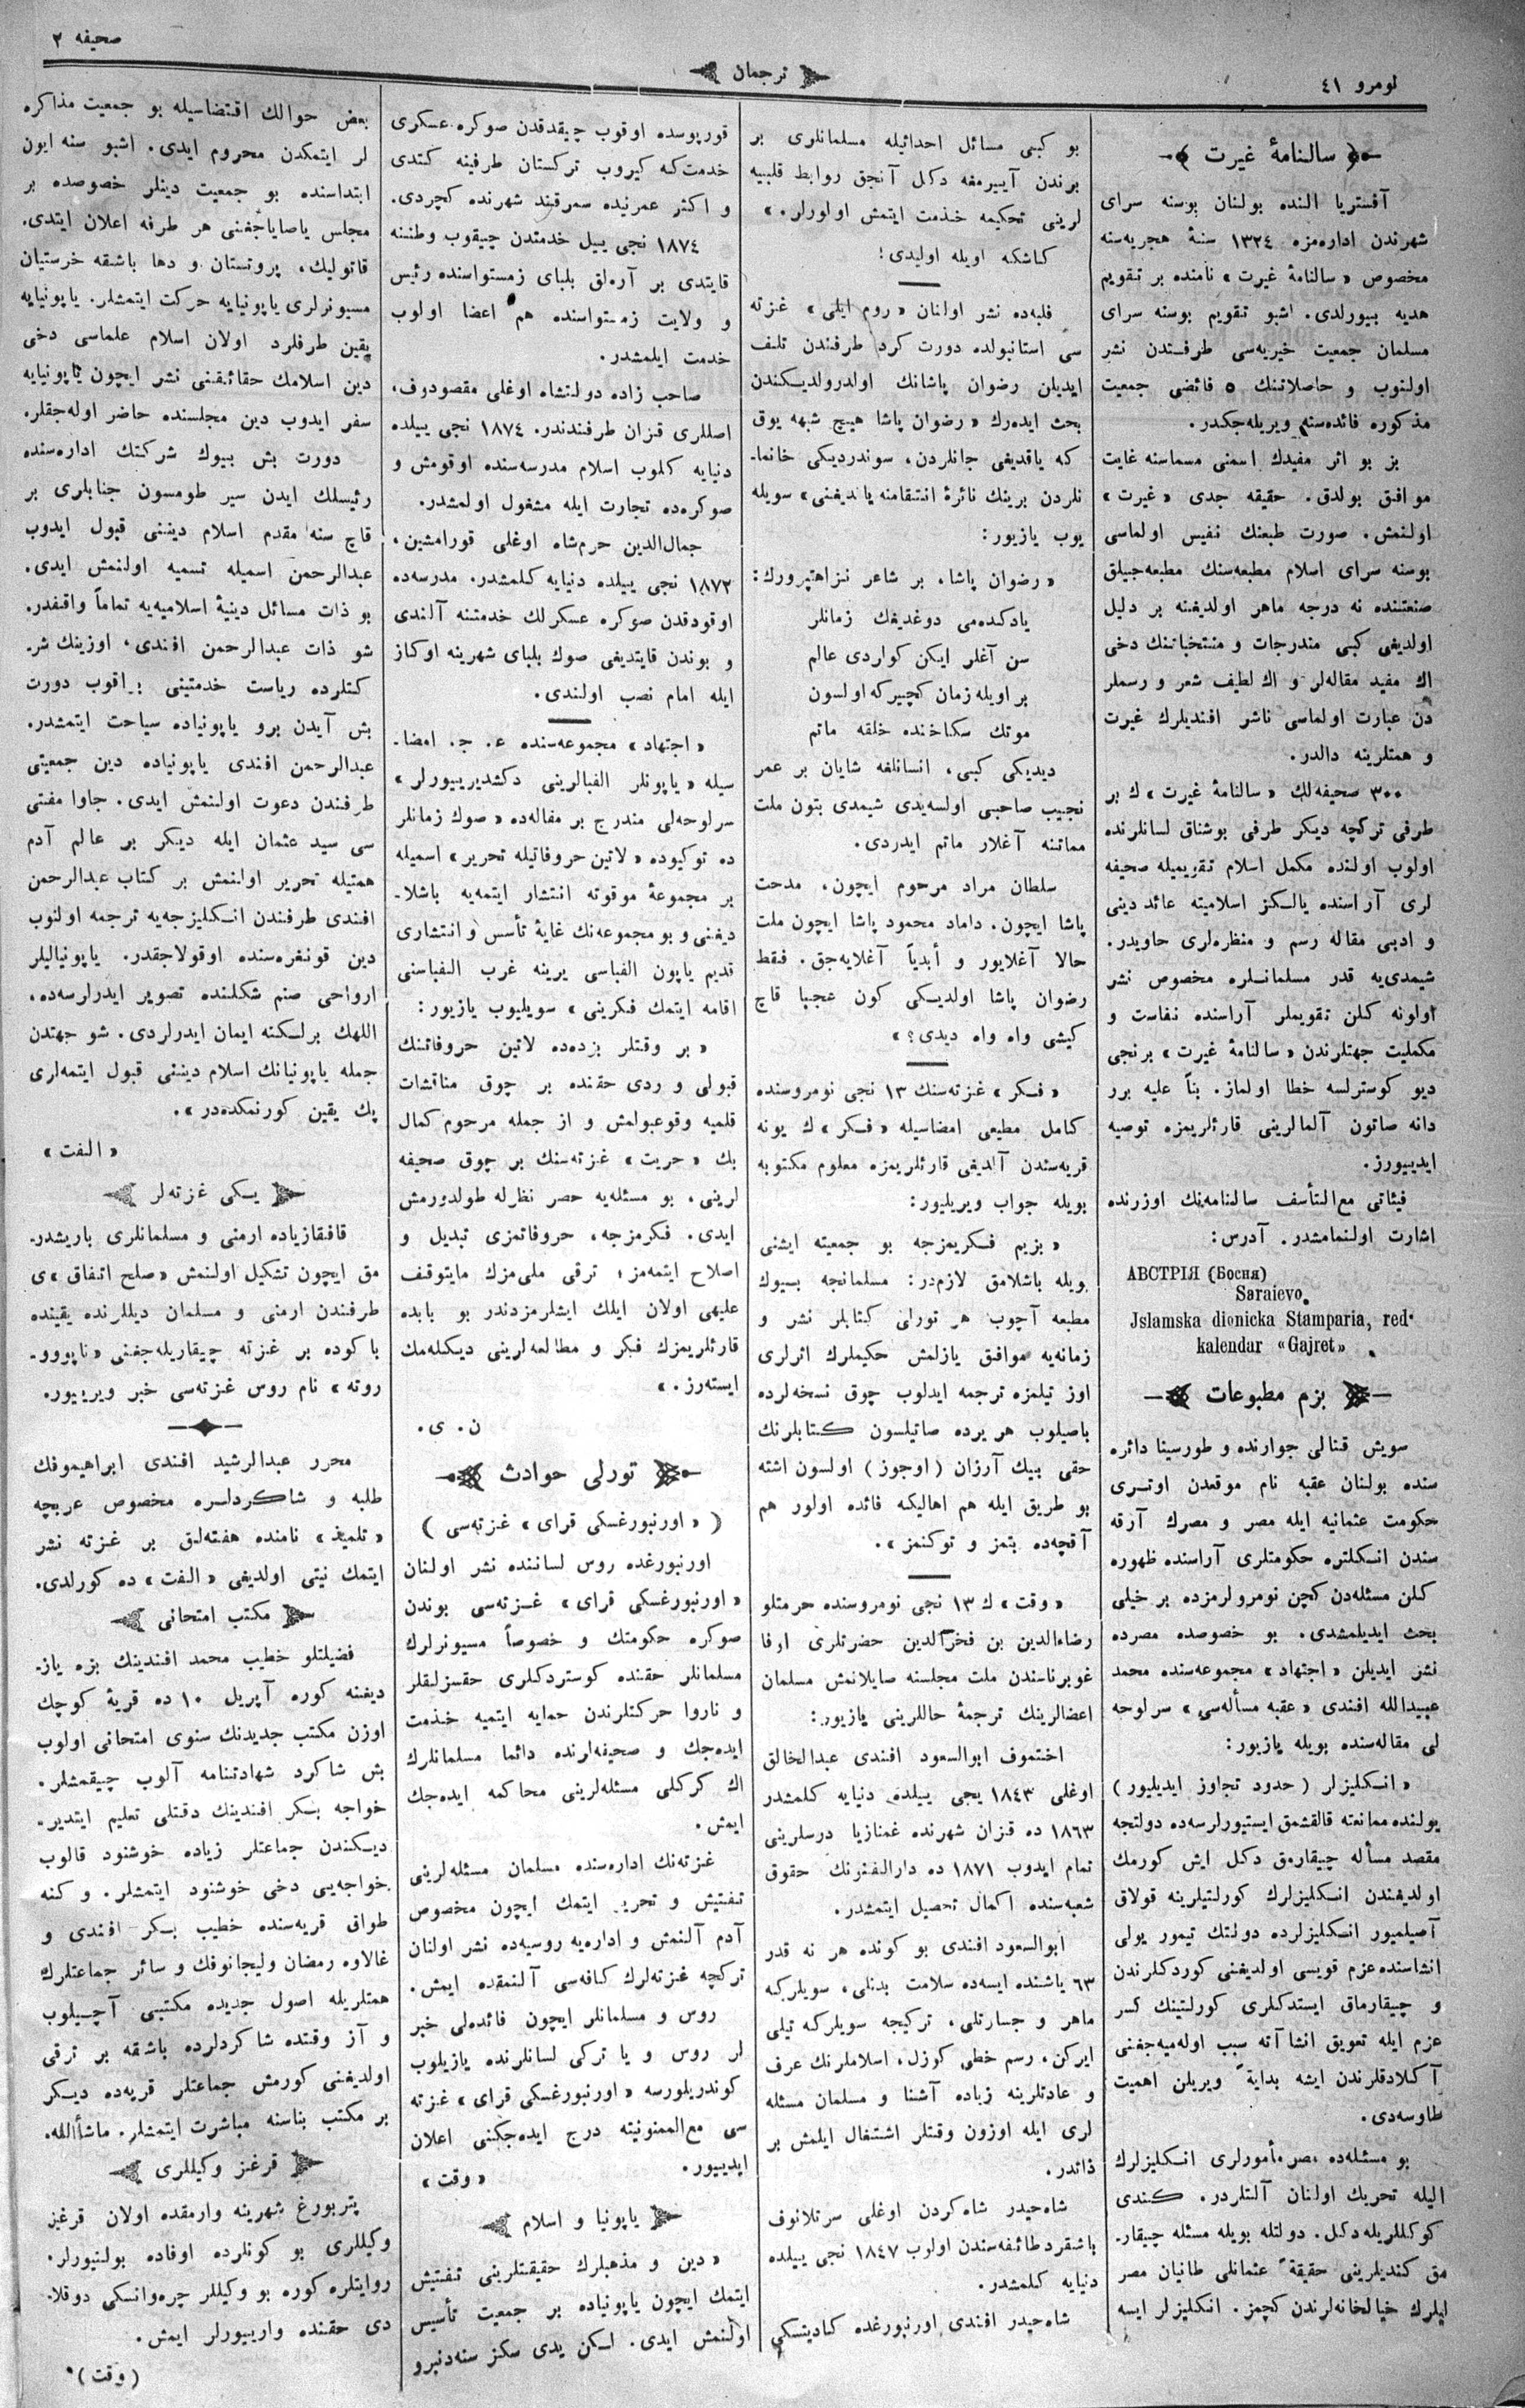 صحیفه ۲
ترجمان
نومرو ٤١
سالنامۀ غیرت
آفستریا النده بولنان بوسنه سرای
شهرندن اداره‌مزه ۱۳۲٤ سنۀ هجریه‌سنه
مخصوص «سالنامۀ غیرت» نامنده بر تقویم
هدیه بیورلدی. اشبو تقویم بوسنه سرای
مسلمان جمعیت خیریه‌سی طرفندن نشر
اولنوب و حاصلاتینك ٥ فائضی جمعیت
مذکوره فائده‌سنه ویریله‌جکدر.
بز بو اثر مفیدك اسمنی مسماسنه غایت
موافق بولدق. حقیقه جدی «غیرت»
اولنمش. صورت طبعنك نفیس اولماسی
بوسنه سرای اسلام مطبعه‌سنك مطبعه‌جیلق
صنعتنده نه درجه ماهر اولدیغنه بر دلیل
اولدیغی کبی مندرجات و منتخباتنك دخی
اك مفید مقاله‌لر و اك لطیف شعر و رسملر
دن عبارت اولماسی ناشر افندیلرك غیرت
و همتلرینه دالدر.
۳۰۰ صحیفه‌لك «سالنامۀ غیرت»ك بر
طرفی ترکچه دیکر طرفی بوشناق لسانلرنده
اولوب اولنده مکمل اسلام تقویمیله صحیفه
لری آراسنده یالکز اسلامیته عائد دینی
و ادبی مقاله رسم و منظره‌لری حاویدر.
شیمدی‌یه قدر مسلمانلره مخصوص نشر
اولونه کلن تقویملر آراسنده نفاست و
مکملیت جهتلرندن «سالنامۀ غیرت» برنجی
دیو کوسترلسه خطا اولماز. بناً علیه برر
دانه صاتون آلمالرینی قارئلریمزه توصیه
ایدییورز.
فیئاتی مع‌التأسف سالنامه‌نك اوزرنده
اشارت اولنمامشدر. آدرس:
АВСТРІЯ (Босня)
Saraievo.
Jslamska dionicka Stamparia, red·
kalendar «Gajret»
بزم مطبوعات
سویش قنالی جوارنده و طورسینا دائره
سنده بولنان عقبه نام موقعدن اوتری
حکومت عثمانیه ایله مصر و مصرك آرقه
سندن انکلتره حکومتلری آراسنده ظهوره
کلن مسئله‌دن کچن نومرولرمزده بر خیلی
بحث ایدیلمشدی. بو خصوصده مصرده
نشر ایدیلن «اجتهاد» مجموعه‌سنده محمد
عبیدالله افندی «عقبه مسأله‌سی» سرلوحه
لی مقاله‌سنده بویله یازیور:
«انکلیزلر (حدود تجاوز ایدیلیور)
یولنده ممانعته قالقشمق ایستیورلرسه‌ده دولتجه
مقصد مسأله چیقارمق دکل ایش کورمك
اولدیغندن انکلیزلرك کورلتیلرینه قولاق
آصیلمیور انکلیزلرده دولتك تیمور یولی
انشاسنده عزم قویسی اولدیغنی کوردکلرندن
و چیقارماق ایستدکلری کورلتینك کسر
عزم ایله تعویق انشاآته سبب اوله‌میه‌جغنی
آکلادقلرندن ایشه بدایةً ویریلن اهمیت
طاوسه‌دی.
بو مسئله‌ده مصر مأمورلری انکلیزلرك
الیله تحریك اولنان آلتلردر. کندی
کوکللریله دکل. دولتله بویله مسئله چیقار-
مق کندیلرینی حقیقةً عثمانلی طانیان مصر
لیلرك خیالخانه‌لرندن کچمز. انکلیزلر ایسه
بو کبی مسائل احداثیله مسلمانلری بر
برندن آییرمغه دکل آنجق روابط قلبیه
لرینی تحکیمه خذمت ایتمش اولورلر.»
کاشکه اویله اولیدی!
فلبه‌ده نشر اولنان «روم ایلی» غزته
سی استانبولده دورت کرد طرفندن تلف
ایدیلن رضوان پاشانك اولدرولدیکندن
بحث ایده‌رك «رضوان پاشا هیچ شبهه یوق
که یاقدیغی جانلردن، سوندردیکی خانما-
نلردن برینك نائرۀ انتقامنه یاندیغنی» سویله
یوب یازیور:
«رضوان پاشا، بر شاعر نزاهتپرورك:
یادکده‌می دوغدیغك زمانلر
سن آغلر ایکن کولردی عالم
بر اویله زمان کچیرکه اولسون
موتك سکا خنده خلقه ماتم
دیدیکی کبی، انسانلغه شایان بر عمر
نجیب صاحبی اولسه‌یدی شیمدی بتون ملت
مماتنه آغلار ماتم ایدردی.
سلطان مراد مرحوم ایچون، مدحت
پاشا ایچون. داماد محمود پاشا ایچون ملت
حالا آغلایور و أبدیاً آغلایه‌جق. فقط
رضوان پاشا اولدیکی کون عجبا قاچ
کیشی واه واه دیدی؟»
«فکر» غزته‌سنك ۱۳ نجی نومروسنده
کامل مطیعی امضاسیله «فکر»ك یونه
قریه‌سندن آلدیغی قارئلریمزه معلوم مکتوبه
بویله جواب ویریلیور:
«بزیم فکریمزجه بو جمعیته ایشنی
بویله باشلامق لازمدر: مسلمانجه بیوك
مطبعه آچوب هر تورلی کتابلر نشر و
زمانه‌یه موافق یازلمش حکیملرك اثرلری
اوز تیلمزه ترجمه ایدلوب چوق نسخه‌لرده
باصیلوب هر یرده صاتیلسون کتابلرنك
حقی بیك آرزان (اوجوز) اولسون اشته
بو طریق ایله هم اهالیکه فائده اولور هم
آقچه‌ده بتمز و توکنمز».
«وقت»ك ۱۳ نجی نومروسنده حرمتلو
رضاءالدین بن فخرالدین حضرتلری اوفا
غوبرناسندن ملت مجلسنه صایلانمش مسلمان
اعضالرینك ترجمۀ حاللرینی یازیور:
اختموف ابوالسعود افندی عبدالخالق
اوغلی ۱۸٤۳ یجی ییلده دنیایه کلمشدر
۱۸٦۳ ده قزان شهرنده غمنازیا درسلرینی
تمام ایدوب ۱۸۷۱ ده دارالفنونك حقوق
شعبه‌سنده اکمال تحصیل ایتمشدر.
ابوالسعود افندی بو کونده هر نه قدر
٦۳ یاشنده ایسه‌ده سلامت بدنلی، سویلرکه
ماهر و جسارتلی، ترکیجه سویلرکه تیلی
ایرکن، رسم خطی کوزل، اسلاملرنك عرف
و عادتلرینه زیاده آشنا و مسلمان مسئله
لری ایله اوزون وقتلر اشتغال ایلمش بر
ذاتدر.
شاه‌حیدر شاه‌کردن اوغلی سرتلانوف
باشقرد طائفه‌سندن اولوب ۱۸٤۷ نجی ییلده
دنیایه کلمشدر.
شاه‌حیدر افندی اورنبورغده کادیتسکی
قورپوسده اوقوب چیقدقدن صوکره عسکری
خدمتکه کیروب ترکستان طرفینه کتدی
و اکثر عمرنیده سمرقند شهرنده کچردی.
۱۸۷٤ نجی ییل خدمتدن چیقوب وطننه
قایتدی بر آره‌لق بلبای زمستواسنده رئیس
و ولایت زمستواسنده هم اعضا اولوب
خدمت ایلمشدر.
صاحب زاده دولتشاه اوغلی مقصودوف،
اصللری قزان طرفندندر. ۱۸۷٤ نجی ییلده
دنیایه کلوب اسلام مدرسه‌سنده اوقومش و
صوکره‌ده تجارت ایله مشغول اولمشدر.
جمال‌الدین حرم‌شاه اوغلی قورامشین،
۱۸۷۲ نجی ییلده دنیایه کلمشدر. مدرسه‌ده
اوقودقدن صوکره عسکرلك خدمتنه آلندی
و بوندن قایتدیغی صوك بلبای شهرینه اوکاز
ایله امام نصب اولندی.
«اجتهاد» مجموعه‌سنده ع. ج. امضا-
سیله «یاپونلر الفبالرینی دکشدیرییورلر»
سرلوحه‌لی مندرج بر مقاله‌ده «صوك زمانلر
ده توکیوده «لاتین حروفاتیله تحریر» اسمیله
بر مجموعۀ موقوته انتشار ایتمه‌یه باشلا-
دیغنی و بو مجموعه‌نك غایۀ تأسس و انتشاری
قدیم یاپون الفباسی یرینه غرب الفباسنی
اقامه ایتمك فکرینی» سویلیوب یازیور:
«بر وقتلر بزده‌ده لاتین حروفاتنك
قبولی و ردی حقنده بر چوق مناقشات
قلمیه وقوعبولمش و از جمله مرحوم کمال
بك «حریت» غزته‌سنك بر چوق صحیفه
لرینی، بو مسئله‌یه حصر نظرله طولدورمش
ایدی. فکرمزجه، حروفاتمزی تبدیل و
اصلاح ایتمه‌مز؛ ترقی ملی‌مزك مایتوقف
علیهی اولان ایلك ایشلرمزدندر بو بابده
قارئلریمزك فکر و مطالعه‌لرینی دیکله‌مك
ایسته‌رز.»
ن. ی.
تورلی حوادث
(«اورنبورغسکی قرای» غزته‌سی)
اورنبورغده روس لساننده نشر اولنان
«اورنبورغسکی قرای» غزته‌سی بوندن
صوکره حکومتك و خصوصاً مسیونرلرك
مسلمانلر حقنده کوستردکلری حقسزلقلر
و ناروا حرکتلرندن حمایه ایتمیه خذمت
ایده‌جك و صحیفه‌لرنده دائما مسلمانلرك
اك کرکلی مسئله‌لرینی محاکمه ایده‌جك
ایمش.
غزته‌نك اداره‌سنده مسلمان مسئله‌لرینی
تفتیش و تحریر ایتمك ایچون مخصوص
آدم آلنمش و اداره‌یه روسیه‌ده نشر اولنان
ترکچه غزته‌لرك کافه‌سی آلنمقده ایمش.
روس و مسلمانلر ایچون فائده‌لی خبر
لر روس و یا ترکی لسانلرنده یازیلوب
کوندریلورسه «اورنبورغسکی قرای» غزته
سی مع‌الممنونیته درج ایده‌جکنی اعلان
ایدییور.
«وقت»
یاپونیا و اسلام
«دین و مذهبلرك حقیقتلرینی تفتیش
ایتمك ایچون یاپونیاده بر جمعیت تأسیس
اولنمش ایدی. لکن یدی سکز سنه‌دنبرو
بعض حوالك اقتضاسیله بو جمعیت مذاکره
لر ایتمکدن محروم ایدی. اشبو سنه ایون
ابتداسنده بو جمعیت دینلر خصوصده بر
مجلس یاصایاجغنی هر طرفه اعلان ایتدی.
قاتولیك، پروتستان و دها باشقه خرستیان
مسیونرلری یاپونیایه حرکت ایتمشلر. یاپونیایه
یقین طرفلرد اولان اسلام علماسی دخی
دین اسلامك حقائقنی نشر ایچون یاپونیایه
سفر ایدوب دین مجلسنده حاضر اوله‌جقلر.
دورت بش بیوك شرکتك اداره‌سنده
رئیسلك ایدن سیر طومسون جنابلری بر
قاچ سنه مقدم اسلام دیننی قبول ایدوب
عبدالرحمن اسمیله تسمیه اولنمش ایدی.
بو ذات مسائل دینیۀ اسلامیه‌یه تماماً واقفدر.
شو ذات عبدالرحمن افندی، اوزینك شر-
کتلرده ریاست خدمتینی براقوب دورت
بش آیدن برو یاپونیاده سیاحت ایتمشدر.
عبدالرحمن افندی یاپونیاده دین جمعیتی
طرفندن دعوت اولنمش ایدی. جاوا مفتی
سی سید عثمان ایله دیکر بر عالم آدم
همتیله تحریر اولنمش بر کتاب عبدالرحمن
افندی طرفندن انکلیزجه‌یه ترجمه اولنوب
دین قونغره‌سنده اوقولاجقدر. یاپونیالیلر
ارواحی صنم شکلنده تصویر ایدرلرسه‌ده،
اللهك برلکنه ایمان ایدرلردی. شو جهتدن
جمله یاپونیانك اسلام دیننی قبول ایتمه‌لری
پك یقین کورنمکده‌در».
«الفت»
یکی غزته‌لر
قافقازیاده ارمنی و مسلمانلری باریشدر-
مق ایچون تشکیل اولنمش «صلح اتفاق»ی
طرفندن ارمنی و مسلمان دیللرنده یقینده
باکوده بر غزته چیقاریله‌جغنی «ناپووو-
روته» نام روس غزته‌سی خبر ویرییور.
محرر عبدالرشید افندی ابراهیموفك
طلبه و شاکردلره مخصوص عربچه
«تلمیذ» نامنده هفته‌لق بر غزته نشر
ایتمك نیتی اولدیغی «الفت»ده کورلدی.
مکتب امتحانی
فضیلتلو خطیب محمد افندینك بزه یاز-
دیغنه کوره آپریل ۱۰ ده قریۀ کوچك
اوزن مکتب جدیدنك سنوی امتحانی اولوب
بش شاکرد شهادتنامه آلوب چیقمشلر.
خواجه بکر افندینك دقتلی تعلیم ایتدیر-
دیکندن جماعتلر زیاده خوشنود قالوب
خواجه‌یی دخی خوشنود ایتمشلر. و کنه
طواق قریه‌سنده خطیب بکر افندی و
غالاوه رمضان ولیجانوفك و سائر جماعتلرك
همتلریله اصول جدیده مکتبی آچیلوب
و آز وقتده شاکردلرده باشقه بر ترقی
اولدیغنی کورمش جماعتلر قریه‌ده دیکر
بر مکتب بناسنه مباشرت ایتمشلر. ماشأالله.
قرغز وکیللری
پتربورغ شهرینه وارمقده اولان قرغیز
وکیللری بو کونلرده اوفاده بولنیورلر.
روایتلره کوره بو وکیللر چره‌وانسکی دوقلا-
دی حقنده وارییورلر ایمش.
(وقت)